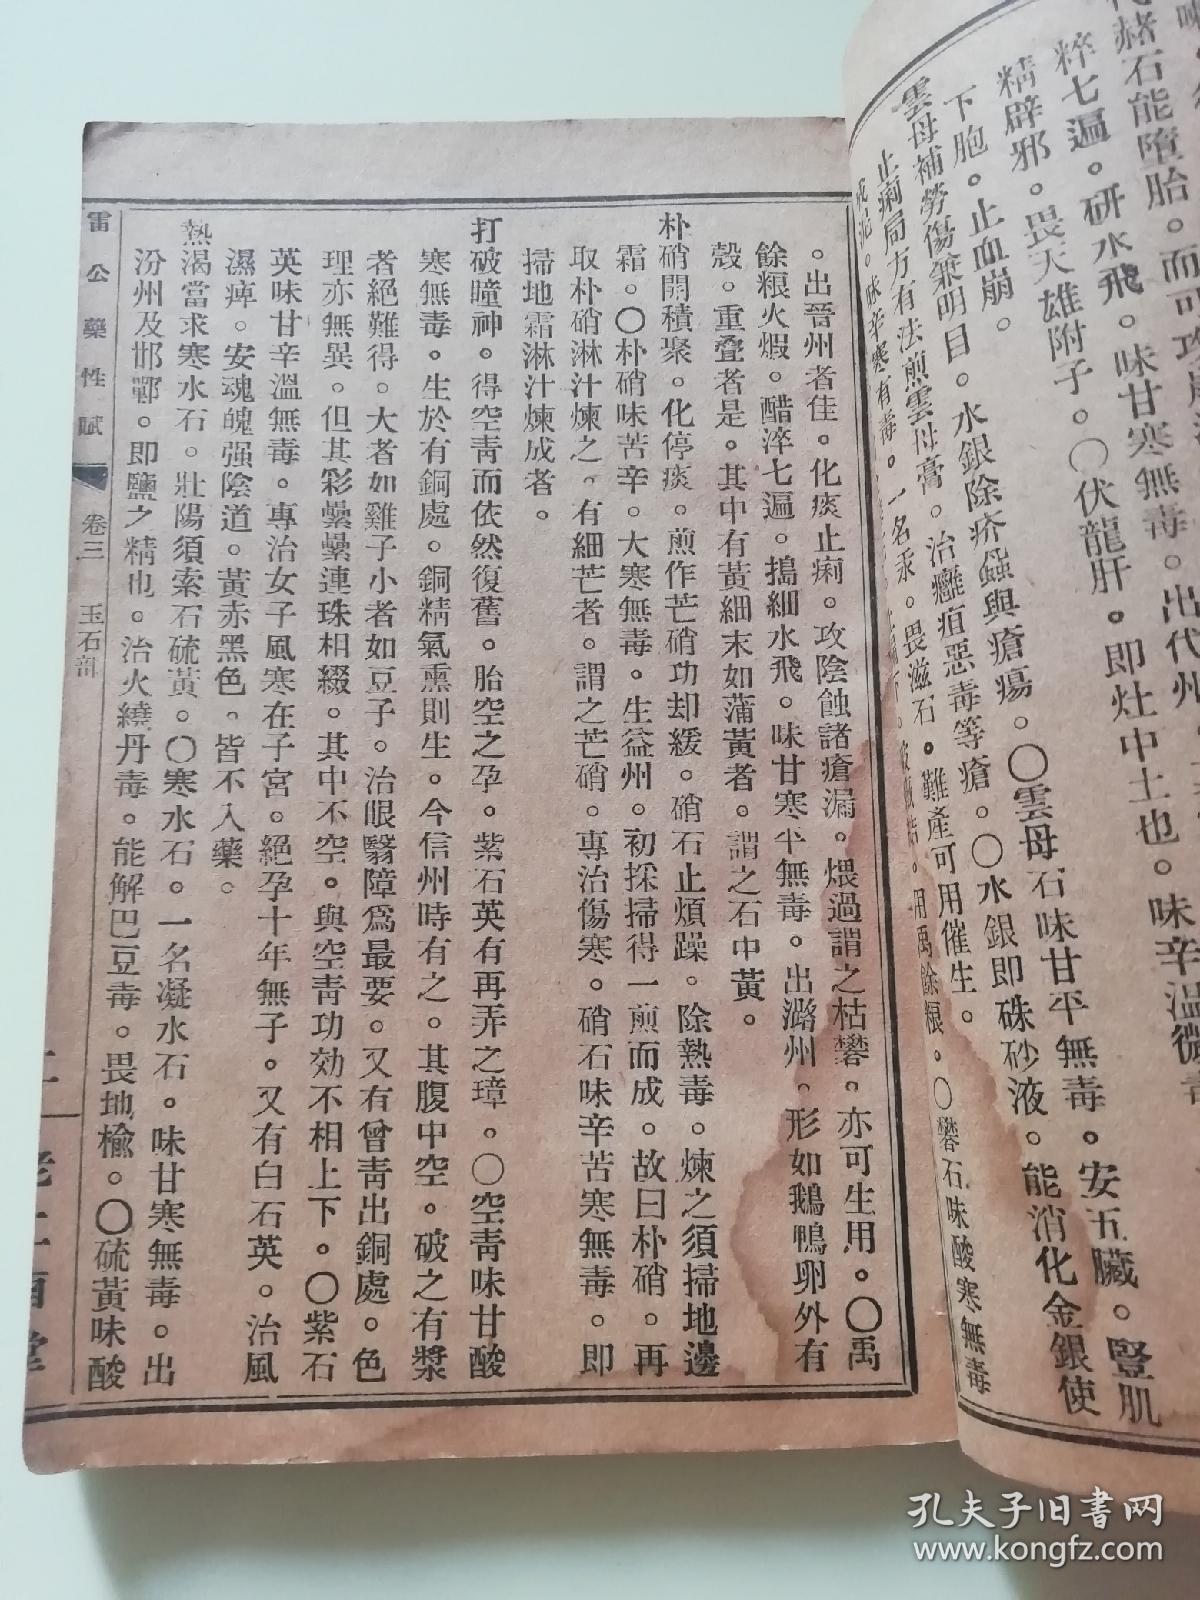 赭石能墮胎。而可攻
粹七遍。研水飛。味甘寒無毒。出代州
精辟邪。畏天雄附子。〇伏龍肝。即灶中土也。味辛溫微
下胞。止血崩。
雲母補勞傷兼明目。水銀除疥蝨與瘡瘍。〇雲母石味甘平無毒。安五臟。豎肌
止痢局方有法煎雲母膏。治癰疽惡毒等瘡。〇水銀即硃砂液。能消化金銀使
成泥。味辛寒有毒。一名汞。畏滋石。難產可用催生。
用禹餘粮。〇礬石味酸寒無毒
。出晉州者佳。化痰止痢。攻陰蝕諸瘡漏。煨過謂之枯礬。亦可生用。〇禹
餘粮火煆。醋淬七遍。搗細水飛。味甘寒平無毒。出潞州。形如鵝鴨卵外有
殼。重疊者是。其中有黃細末如蒲黃者。謂之石中黃。
朴硝開積聚。化停痰。煎作芒硝功却緩。硝石止煩躁。除熱毒。煉之須掃地邊
霜。〇朴硝味苦辛。大寒無毒。生益州。初採掃得一煎而成。故曰朴硝。再
取朴硝淋汁煉之。有細芒者。謂之芒硝。專治傷寒。硝石味辛苦寒無毒。即
掃地霜淋汁煉成者。
打破瞳神。得空青而依然復舊。胎空之孕。紫石英有再弄之璋。〇空青味甘酸
寒無毒。生於有銅處。銅精氣熏則生。今信州時有之。其腹中空。破之有漿
者絕難得。大者如雞子小者如豆子。治眼翳障爲最要。又有曾青出銅處。色
理亦無異。但其彩纍纍連珠相綴。其中不空。與空青功効不相上下。〇紫石
英味甘辛溫無毒。專治女子風寒在子宮。絕孕十年無子。又有白石英。治風
濕痺。安魂魄强陰道。黃赤黑色。皆不入藥。
熱渴當求寒水石。壯陽須索石硫黃。〇寒水石。一名凝水石。味甘寒無毒。出
汾州及邯鄲。即鹽之精也。治火繞丹毒。能解巴豆毒。畏地榆。〇硫黃味酸
雷公藥性賦 卷三 玉石部
孔夫子旧书网
www.kongfz.com